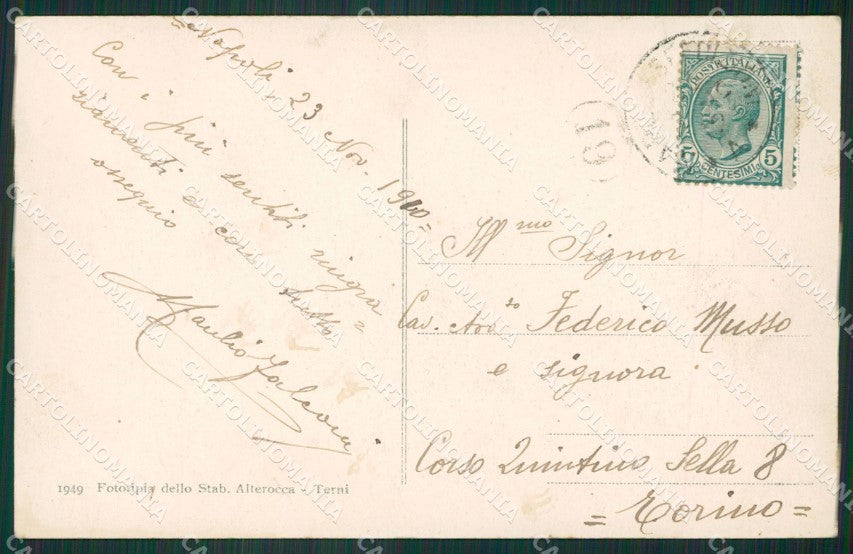 = Napoli 23 Nov. 1910 =
Con i più sentiti ringra=
ziamenti e con tutto
ossequio
Manlio Falconi
1949 Fototipia dello Stab. Alterocca - Terni
(19)
POSTE ITALIANE
5 CENTESIMI 5
Ill.mo Signor
Cav. Avv.to Federico Musso
e signora
Corso Quintino Sella 8
= Torino =
CARTOLINOMANIA